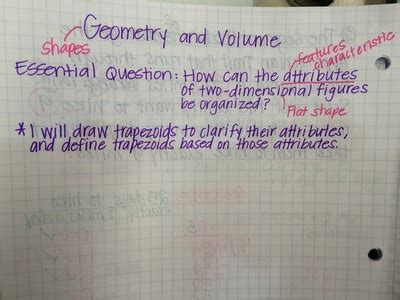 Geometry and Volume
shapes
features
characteristic
Essential Question: How can the attributes
of two-dimensional figures
be organized?
Flat shape
*I will draw trapezoids to clarify their attributes,
and define trapezoids based on those attributes.